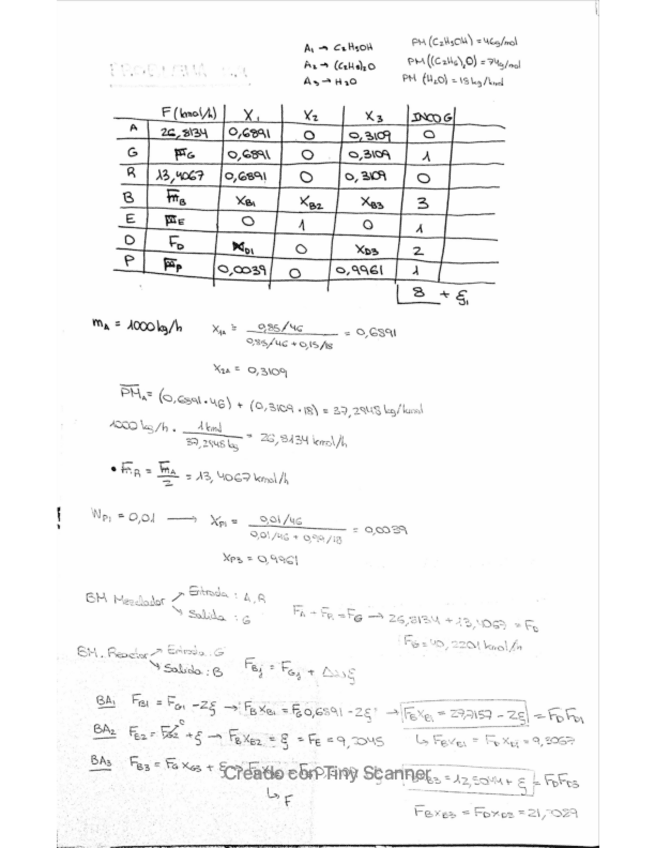 A₁ → C₂H₅OH PM (C₂H₅OH) = 46g/mol
A₂ → (C₂H₅)₂O PM((C₂H₅)₂O) = 74g/mol
A₃ → H₂O PM (H₂O) = 18 kg/kmol
F (kmol/h) X₁ X₂ X₃ INCOG
A 26,8134 0,6891 0 0,3109 0
G F_G 0,6891 0 0,3109 1
R 13,4067 0,6891 0 0,3109 0
B F_B X_B1 X_B2 X_B3 3
E F_E 0 1 0 1
D F_D X_D1 0 X_D3 2
P F_P 0,0039 0 0,9961 1
8 + ξ₁
m_A = 1000 kg/h X₁A = (0,85/46)/(0,85/46 + 0,15/18) = 0,6891
X₂A = 0,3109
PM_A = (0,6891 · 46) + (0,3109 · 18) = 37,2948 kg/kmol
1000 kg/h · 1 kmol/37,2948 kg = 26,8134 kmol/h
• F_R = F_A/2 = 13,4067 kmol/h
W_P1 = 0,01 → X_P1 = (0,01/46)/(0,01/46 + 0,99/18) = 0,0039
X_P3 = 0,9961
BM Mezclador Entrada : A, R
Salida : G
F_A + F_R = F_G → 26,8134 + 13,4067 = F_G
F_G = 40,2201 kmol/h
BM. Reactor Entrada : G
Salida : B
F_Bj = F_Gj +
BA₁ F_B1 = F_G1 - 2ξ → F_B X_B1 = F_G 0,6891 - 2ξ → F_B X_B1 = 27,7157 - 2ξ = F_D
BA₂ + ξ → F_B X_B2 = ξ = F_E = 9,2045
↳ F_B X_B1 = F_D X_D1 = 9,3067
BA₃ F_B3 = F_G X_G3 + ξ
= 12,5044 + ξ
Creado con Tiny Scanner
↳ F
F_B X_B3 = F_D X_D3 = 21,7089